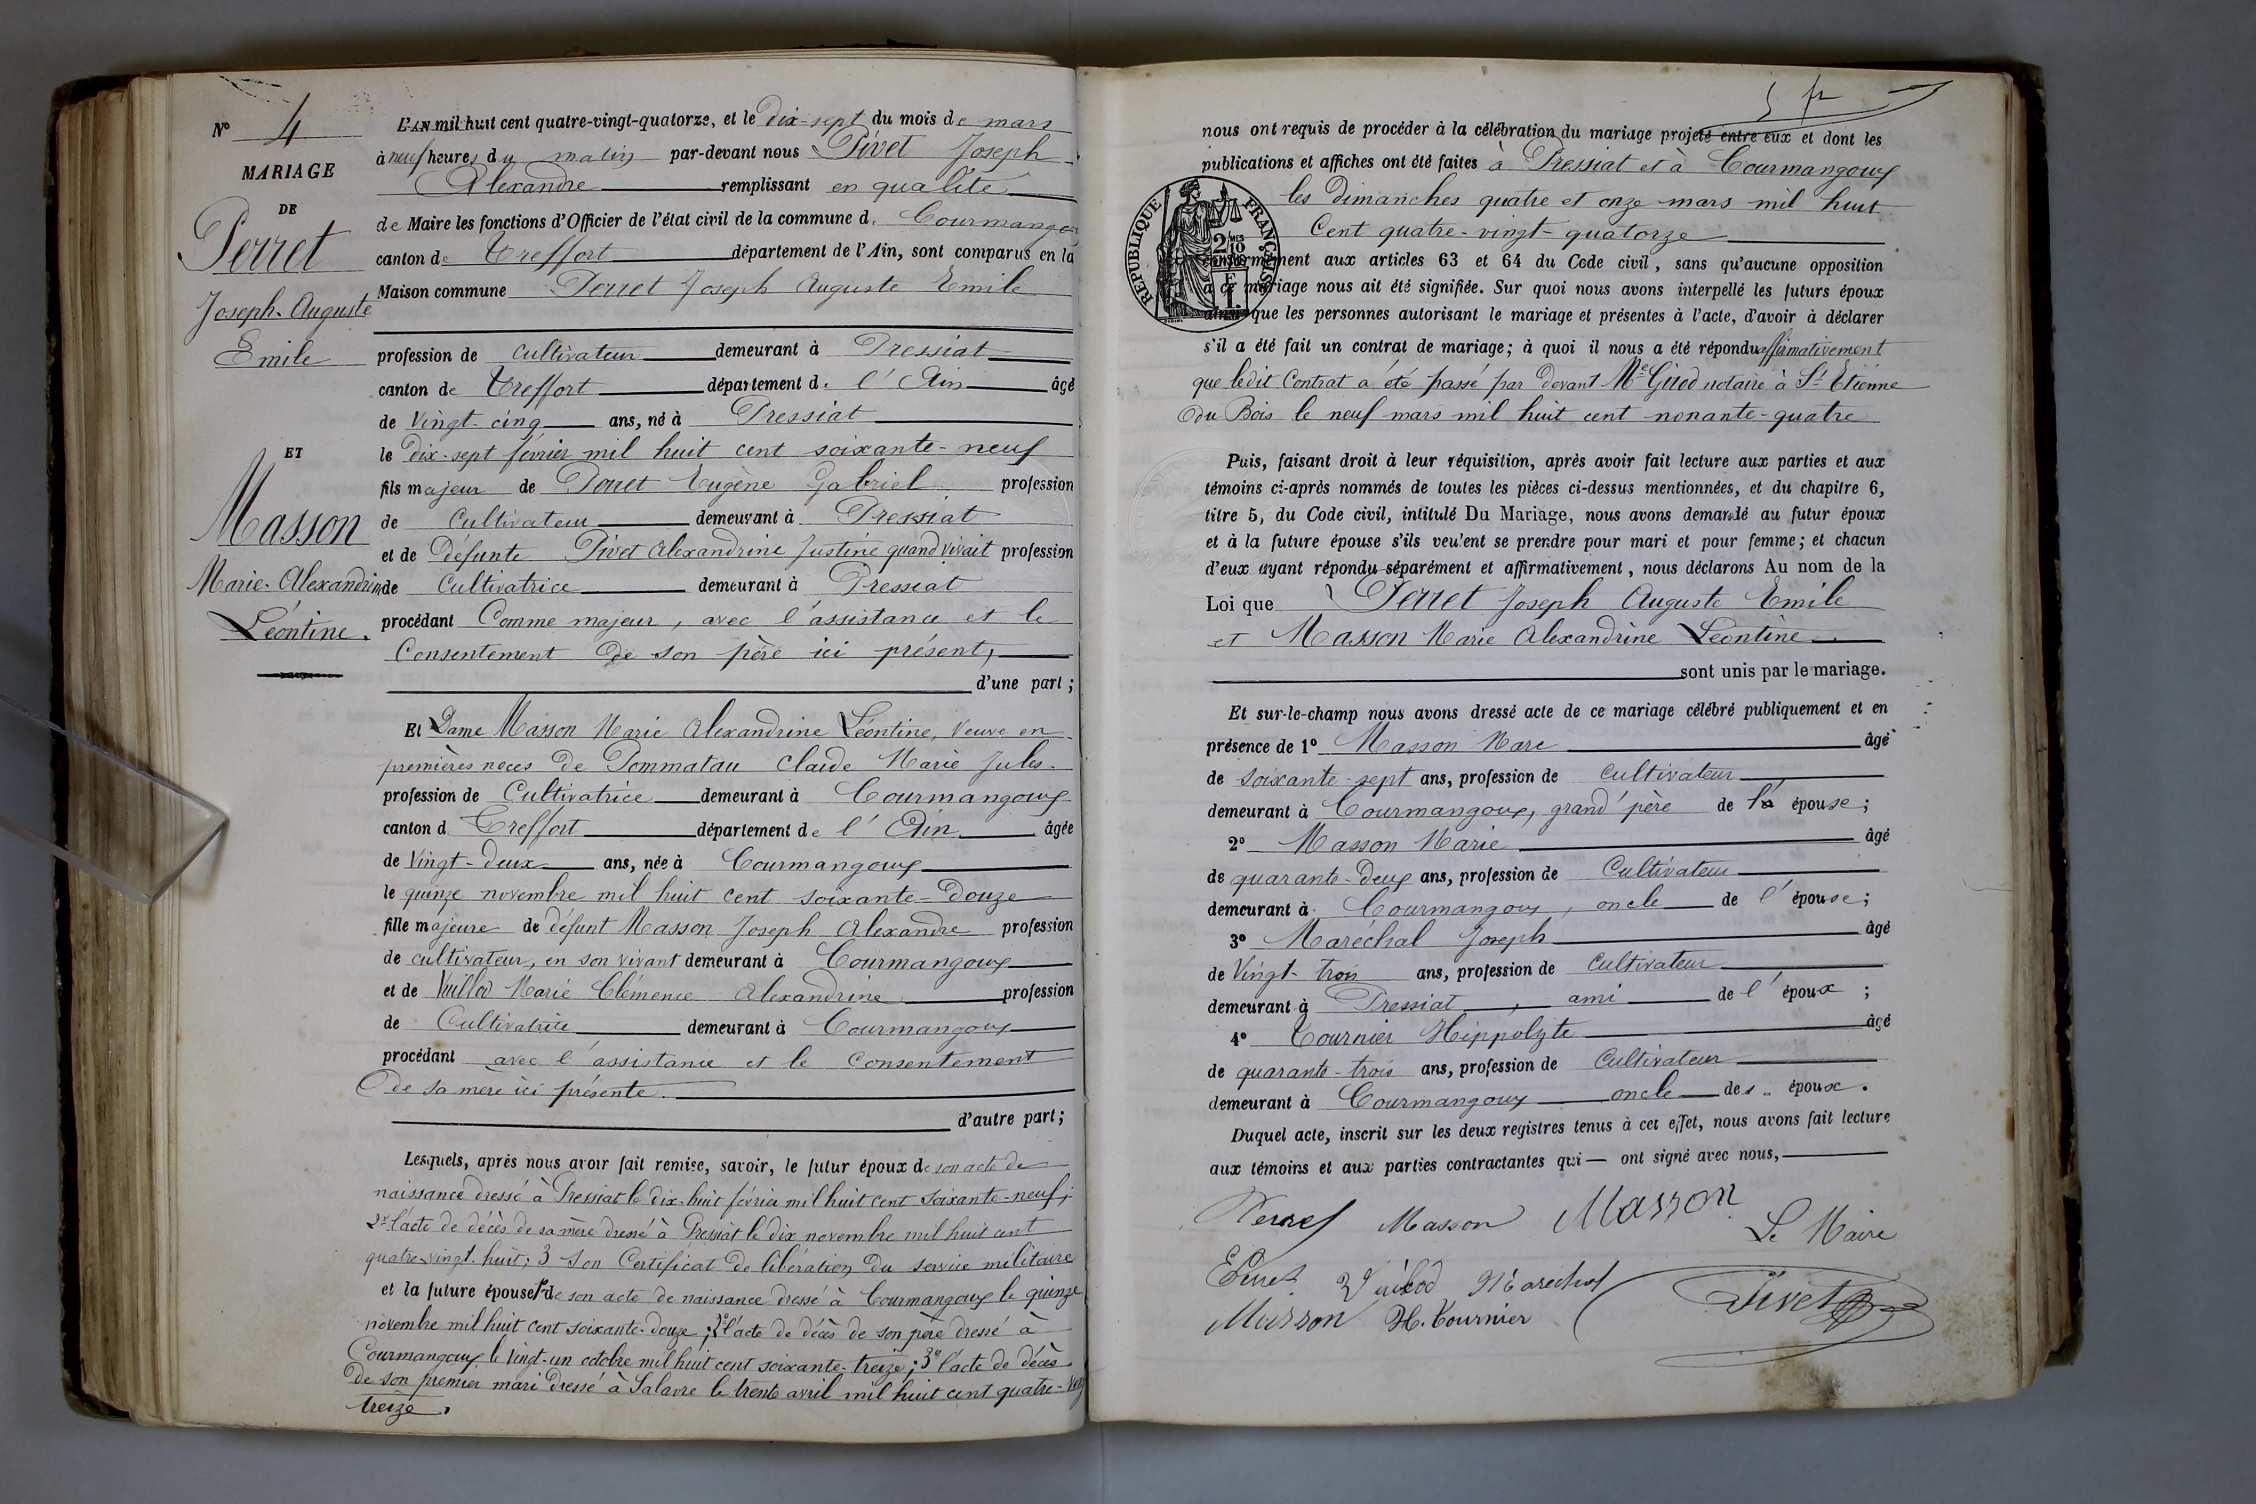 N° 4
MARIAGE
DE
Perret
Joseph-Auguste
Emile
ET
Masson
Marie-Alexandrine
Léontine.
L'AN mil huit cent quatre-vingt-quatorze, et le dix-sept du mois de mars
à neuf heures du matin par-devant nous Pivet Joseph
Alexandre remplissant en qualité
de Maire les fonctions d'Officier de l'état civil de la commune d. Courmangoux
canton de Treffort département de l'Ain, sont comparus en la
Maison commune Perret Joseph Auguste Emile
profession de cultivateur demeurant à Pressiat
canton de Treffort département d. l'Ain âgé
de Vingt-cinq ans, né à Pressiat
le dix-sept février mil huit cent soixante-neuf
fils majeur de Perret Eugène Gabriel profession
de Cultivateur demeurant à Pressiat
et de Défunte Pivet Alexandrine Justine quand vivait profession
de Cultivatrice demeurant à Pressiat
procédant Comme majeur, avec l'assistance et le
Consentement de son père ici présent,
d'une part ;
Et Dame Masson Marie Alexandrine Léontine, Veuve en
premières noces de Pommatau Claude Marie Jules
profession de Cultivatrice demeurant à Courmangoux
canton d. Treffort département de l'Ain âgée
de Vingt-deux ans, née à Courmangoux
le quinze novembre mil huit cent soixante-douze
fille majeure de défunt Masson Joseph Alexandre profession
de cultivateur, en son vivant demeurant à Courmangoux
et de Vuillod Marie Clémence Alexandrine profession
de Cultivatrice demeurant à Courmangoux
procédant avec l'assistance et le Consentement
de sa mère ici présente.
d'autre part ;
Lesquels, après nous avoir fait remise, savoir, le futur époux de son acte de
naissance dressé à Pressiat le dix-huit février mil huit cent soixante-neuf ;
2° l'acte de décès de sa mère dressé à Pressiat le dix novembre mil huit cent
quatre-vingt-huit ; 3 Son Certificat de libération du service militaire
et la future épouse 1° de son acte de naissance dressé à Courmangoux le quinze
novembre mil huit cent soixante-douze ; 2° l'acte de décès de son père dressé à
Courmangoux le Vingt-un octobre mil huit cent soixante-treize ; 3° l'acte de décès
de son premier mari dressé à Salavre le trente avril mil huit cent quatre-Vingt
treize.
5 fr
nous ont requis de procéder à la célébration du mariage projeté entre eux et dont les
publications et affiches ont été faites à Pressiat et à Courmangoux
les dimanches quatre et onze mars mil huit
Cent quatre-vingt-quatorze
RÉPUBLIQUE FRANÇAISE
2/10
conformément aux articles 63 et 64 du Code civil, sans qu'aucune opposition
à ce mariage nous ait été signifiée. Sur quoi nous avons interpellé les futurs époux
ainsi que les personnes autorisant le mariage et présentes à l'acte, d'avoir à déclarer
s'il a été fait un contrat de mariage ; à quoi il nous a été répondu affirmativement
que ledit Contrat a été passé par devant Me Girod notaire à St Etienne
du Bois le neuf mars mil huit cent nonante-quatre
Puis, faisant droit à leur réquisition, après avoir fait lecture aux parties et aux
témoins ci-après nommés de toutes les pièces ci-dessus mentionnées, et du chapitre 6,
titre 5, du Code civil, intitulé Du Mariage, nous avons demandé au futur époux
et à la future épouse s'ils veulent se prendre pour mari et pour femme ; et chacun
d'eux ayant répondu séparément et affirmativement, nous déclarons Au nom de la
Loi que Perret Joseph Auguste Emile
et Masson Marie Alexandrine Léontine
sont unis par le mariage.
Et sur-le-champ nous avons dressé acte de ce mariage célébré publiquement et en
présence de 1° Masson Marc âgé
de soixante-sept ans, profession de Cultivateur
demeurant à Courmangoux, grand'père de l' épouse ;
2° Masson Marie âgé
de quarante-deux ans, profession de Cultivateur
demeurant à Courmangoux, oncle de l'épouse ;
3° Maréchal Joseph âgé
de Vingt-trois ans, profession de Cultivateur
demeurant à Pressiat, ami de l'époux ;
4° Tournier Hippolyte âgé
de quarante-trois ans, profession de Cultivateur
demeurant à Courmangoux oncle des époux.
Duquel acte, inscrit sur les deux registres tenus à cet effet, nous avons fait lecture
aux témoins et aux parties contractantes qui — ont signé avec nous,
Perret Masson Masson Le Maire
EPerret Vuillod Maréchal
Masson H. Tournier Pivet